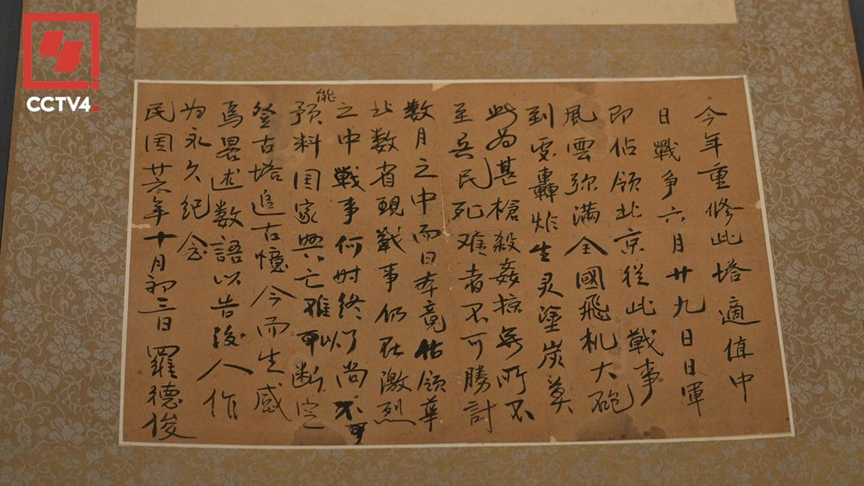 CCTV4
今年重修此塔適值中
日戰争六月廿九日日軍
即佔领北京從此戰事
風雲弥滿全國飛机大砲
到處轟炸生灵塗炭莫
此为甚槍殺姦掠無所不
至兵民死难者不可勝計
数月之中而日本竟佔领華
北数省現戰事仍在激烈
之中戰事何时终了尚不可
能预料国家興亡难以断定
登古塔追古憶今而生感
焉畧述数語以告後人作
为永久纪念
民国廿六年十月初三日羅德俊